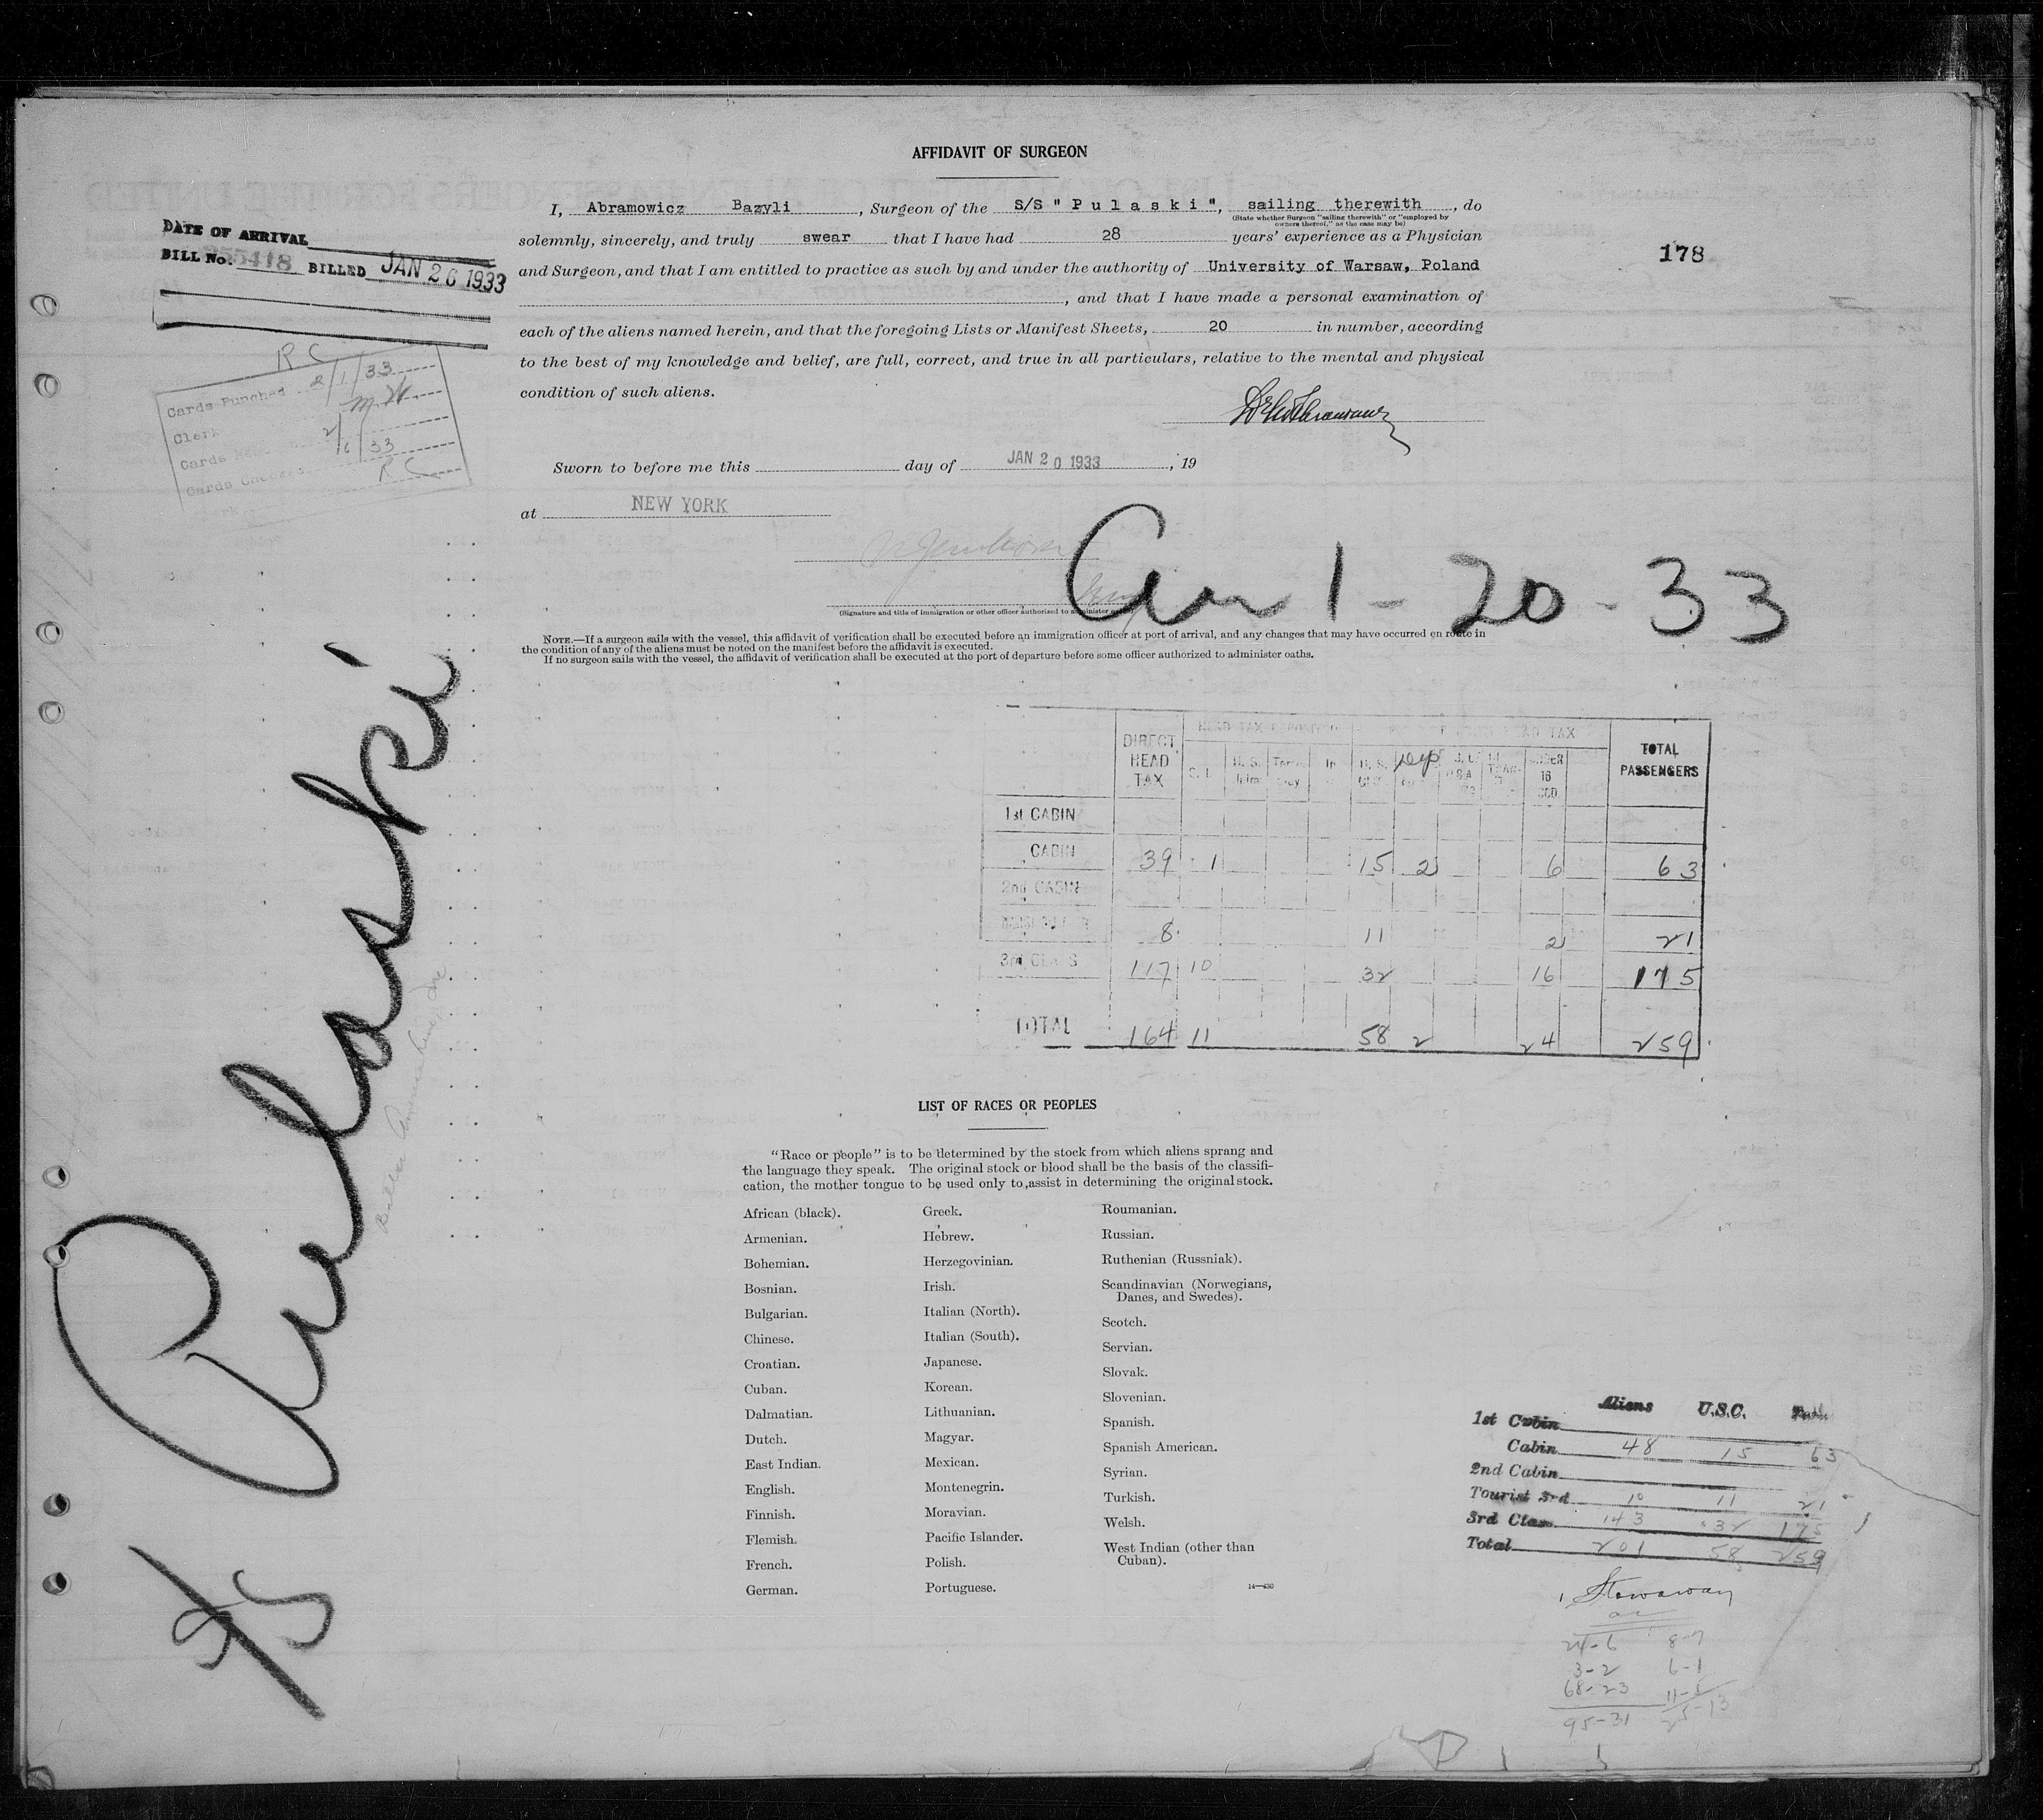 AFFIDAVIT OF SURGEON
I, Abramowicz Bazyli, Surgeon of the S/S "Pulaski", sailing therewith, do
(State whether Surgeon "sailing therewith" or "employed by owners thereof," as the case may be)
solemnly, sincerely, and truly swear that I have had 28 years' experience as a Physician
and Surgeon, and that I am entitled to practice as such by and under the authority of University of Warsaw, Poland
, and that I have made a personal examination of
each of the aliens named herein, and that the foregoing Lists or Manifest Sheets, 20 in number, according
to the best of my knowledge and belief, are full, correct, and true in all particulars, relative to the mental and physical
condition of such aliens.
Sworn to before me this day of JAN 20 1933, 19
at NEW YORK
(Signature and title of immigration or other officer authorized to administer
NOTE.—If a surgeon sails with the vessel, this affidavit of verification shall be executed before an immigration officer at port of arrival, and any changes that may have occurred en route in
the condition of any of the aliens must be noted on the manifest before the affidavit is executed.
If no surgeon sails with the vessel, the affidavit of verification shall be executed at the port of departure before some officer authorized to administer oaths.
DATE OF ARRIVAL
BILL No. BILLED JAN 26 1933
178
R C
Cards Punched 2/1/33
Clerk
Cards
Cards Checked 33
R C
1-20-33
S/S Pulaski
DIRECT HEAD TAX
HEAD TAX
TOTAL PASSENGERS
UNDER 16
1st CABIN
CABIN 39 1 15 2 6 63
2nd CABIN
8 11 2 21
3rd CLASS 117 10 32 16 175
TOTAL 164 11 58 2 24 259
LIST OF RACES OR PEOPLES
"Race or people" is to be determined by the stock from which aliens sprang and
the language they speak. The original stock or blood shall be the basis of the classifi-
cation, the mother tongue to be used only to assist in determining the original stock.
African (black).
Armenian.
Bohemian.
Bosnian.
Bulgarian.
Chinese.
Croatian.
Cuban.
Dalmatian.
Dutch.
East Indian.
English.
Finnish.
Flemish.
French.
German.
Greek.
Hebrew.
Herzegovinian.
Irish.
Italian (North).
Italian (South).
Japanese.
Korean.
Lithuanian.
Magyar.
Mexican.
Montenegrin.
Moravian.
Pacific Islander.
Polish.
Portuguese.
Roumanian.
Russian.
Ruthenian (Russniak).
Scandinavian (Norwegians,
Danes, and Swedes).
Scotch.
Servian.
Slovak.
Slovenian.
Spanish.
Spanish American.
Syrian.
Turkish.
Welsh.
West Indian (other than
Cuban).
Aliens U.S.C.
1st Cabin
Cabin 48 15 63
2nd Cabin
Tourist 3rd 10 11 21
3rd Class 143 32 175
Total 201 58 259
1 Stowaway
24-6 8-7
3-2 6-1
68-23
95-31 25-13